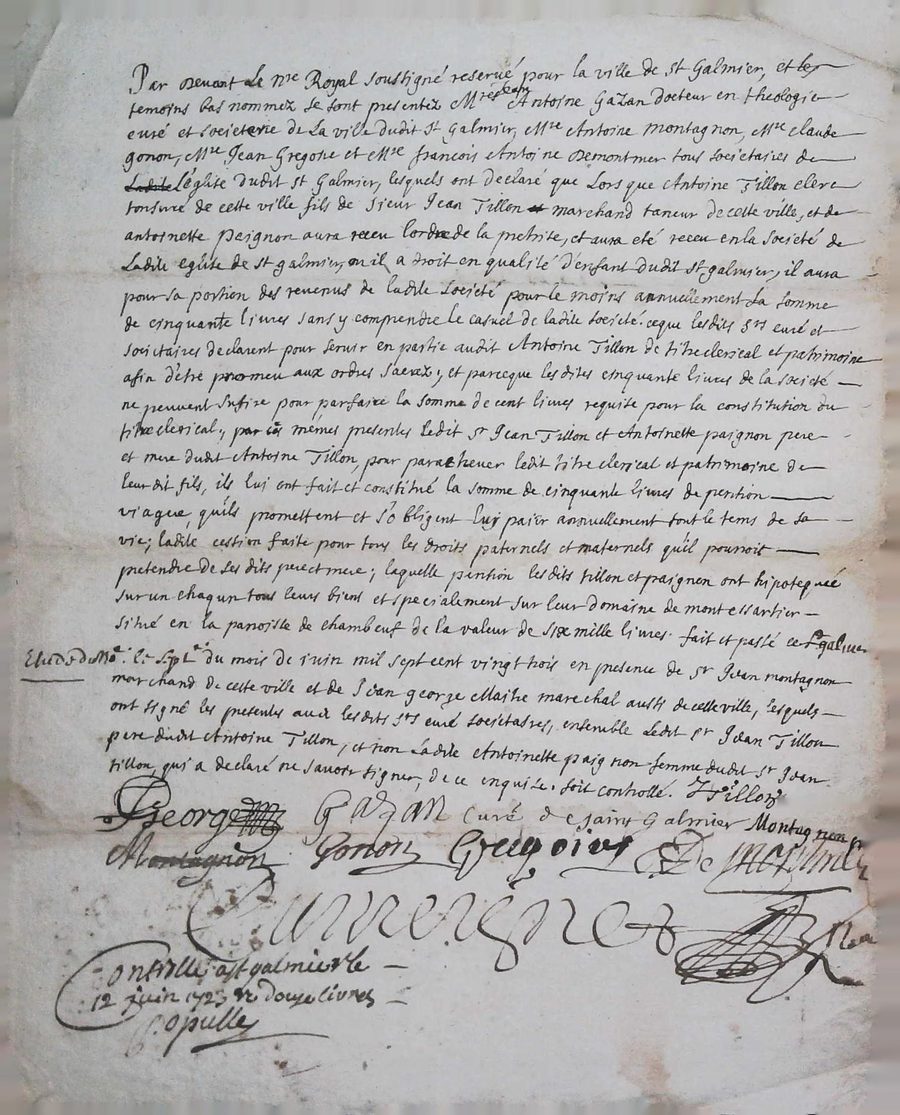 Par devant Le nre Royal soussigné reservé pour la ville de st Galmier, et les
temoins bas nommez se sont presentez Mres Jean Antoine Gazan docteur en theologie
curé et societere de La ville dudit st Galmier, Mre Antoine montagnon, Mre claude
gonon, Mre Jean Gregoire et Mre francois Antoine demontmer tous societaires de
Ladite L'église dudit st Galmier, lesquels ont declaré que Lorsque Antoine Tillon clerc
tonsuré de cette ville fils de sieur Jean Tillon et marchand taneur de cette ville, et de
antoinette paignon aura receu l'ordre de la pretrise, et aura eté receu en la societé de
Ladite eglise de st galmier, ou il a droit en qualité d'enfant dudit st galmier, il aura
pour sa portion des revenus de ladite societé pour le moins annuellement La somme
de cinquante livres sans y comprendre le casuel de ladite societé. ceque lesdits srs curé et
societaires declarent pour servir en partie audit Antoine Tillon de titre clerical et patrimoine
afin d'étre promeu aux ordres sacrez; et parceque lesdites cinquante livres de la societé
ne peuvent sufire pour parfaire la somme de cent livres requise pour la constitution du
titre clerical; par ces mémes presentes ledit sr Jean Tillon et Antoinette paignon pere
et mere dudit Antoine Tillon, pour parachever ledit titre clerical et patrimoine de
leur dit fils, ils lui ont fait et constitué la somme de cinquante livres de pention
viagere, qu'ils promettent et s'obligent luy paier annuellement tout le tems de sa
vie; ladite cession faite pour tous les droits paternels et maternels qu'il pourroit
pretendre de ses dits pere et mere; laquelle pention lesdits tillon et paignon ont hipotequée
sur un chaqun tous leurs biens et specialement sur leur domaine de montessartier
situé en la parroisse de chambeuf de la valeur de six mille livres. fait et passé ce st galmier
Etude d. Nre. le sept.e du mois de juin mil sept cent vingt trois en presence de sr Jean montagnon
marchand de cette ville et de Jean george Maitre marechal aussi de cette ville, lesquels
ont signé les presentes avec lesdits srs curé societaires, ensemble ledit sr Jean Tillon
pere dudit Antoine Tillon, et non Ladite Antoinette paignon femme dudit sr Jean
tillon, qui a declaré ne savoir signer, de ce enquise. soit controllé. J tillon
J George Gazan Curé de saint Galmier Montagnon
Montagnon Gonon Gregoire
Controllé a st galmier le
12 juin 1723 douze livres